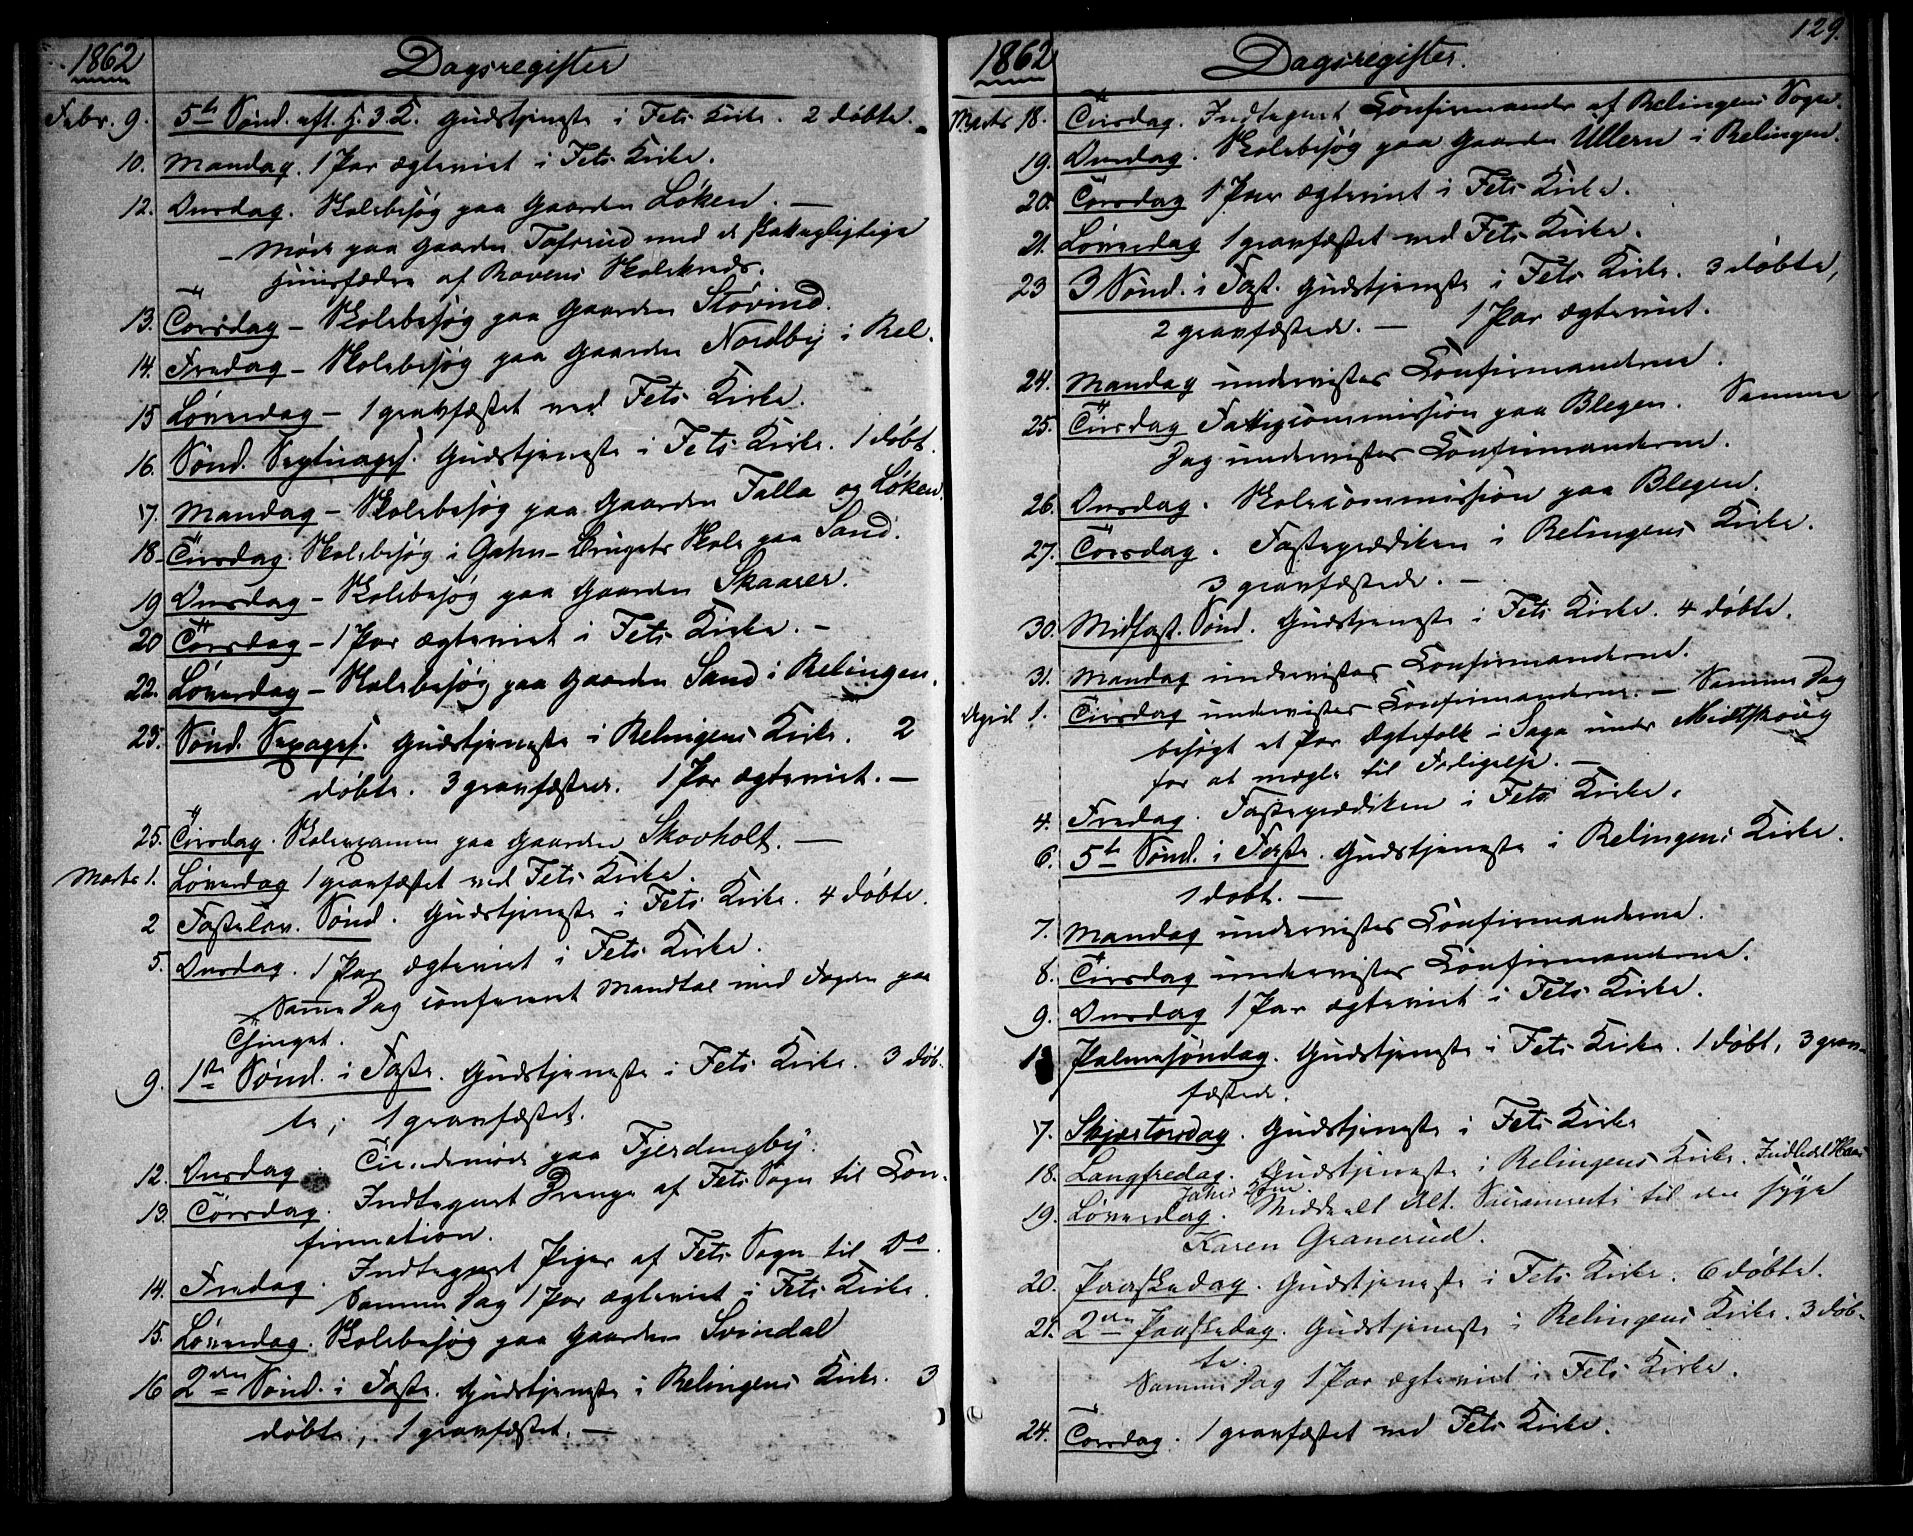 1862 Dagsregister
Febr. 9. 5te Sønd. eft. H. 3 K. Gudstjeneste i Fets Kirke. 2 døbte.
10. Mandag. 1 Par ægteviet i Fets Kirke.
12. Onsdag. Skolebesøg paa Gaarden Løken. —
– Møde paa Gaarden Tofsrud med de skattepligtige
Huusfædre af Rovens Skolekreds.
13. Torsdag – Skolebesøg paa Gaarden Støvind.
14. Fredag – Skolebesøg paa Gaarden Nordby i Rel.
15 Løverdag – 1 gravfæstet ved Fets Kirke.
16. Sønd. Septuages. Gudstjeneste i Fets Kirke. 1 døbt.
17. Mandag – Skolebesøg paa Gaarden Falla og Løken.
18 – Tirsdag. Skolebesøg i Gahn-Brugets Skole paa Sand.
19 Onsdag – Skolebesøg paa Gaarden Skaarer.
20 Torsdag – 1 Par ægteviet i Fets Kirke. –
22. Løverdag – Skolebesøg paa Gaarden Sand i Relingen.
23. Sønd. Sexages. Gudstjeneste i Relingens Kirke. 2
døbte. 3 gravfæstede. 1 Par ægteviet. —
25. Tirsdag. Skoleexamen paa Gaarden Skovholt. —
Marts 1. Løverdag 1 gravfæstet ved Fets Kirke.
2 Fastelav. Sønd. Gudstjeneste i Fets Kirke. 4 døbte.
5. Onsdag. 1 Par ægteviet i Fets Kirke.
Samme Dag confereret Mandtal med Fogden paa
Thinget.
9. 1ste Sønd. i Faste. Gudstjeneste i Fets Kirke. 3 døb-
te; 1 gravfæstet.
12. Onsdag. Tiendemøde paa Fjerdingby.
13. Torsdag. Indtegnet Drenge af Fets Sogn til Con-
firmation.
14. Fredag. Indtegnet Piger af Fets Sogn til Do.
Samme Dag 1 Par ægteviet i Fets Kirke.
15. Løverdag. Skolebesøg paa Gaarden Svindal
16 2den Sønd. i Faste. Gudstjeneste i Relingens Kirke. 3
døbte, 1 gravfæstet. —
129.
1862 Dagsregister.
Marts 18. Tirsdag. Indtegnet Confirmander af Relingens Sogn.
19. Onsdag. Skolebesøg paa Gaarden Ullern i Relingen.
20. Torsdag 1 Par ægteviet i Fets Kirke.
21. Løverdag 1 gravfæstet ved Fets Kirke.
23 3 Sønd. i Fast. Gudstjeneste i Fets Kirke. 3 døbte,
2 gravfæstede. — 1 Par ægteviet.
24. Mandag undervistes Confirmanderne.
25. Tirsdag Fattigcommission paa Blegen. Samme
Dag undervistes Confirmanderne.
26. Onsdag. Skolecommission paa Blegen.
27. Torsdag. Fasteprædiken i Relingens Kirke.
3 gravfæstede. —
30. Midfast. Sønd. Gudstjeneste i Fets Kirke. 4 døbte.
31. Mandag undervistes Confirmanderne.
April 1. Tirsdag undervistes Confirmanderne. – Samme Dag
besøgt et Par Ægtefolk i Saga under Midtskoug
for at mægle til Forligelse. —
4. Fredag. Fasteprædiken i Fets Kirke.
6. 5te Sønd. i Faste. Gudstjeneste i Relingens Kirke.
1 døbt. —
7. Mandag undervistes Confirmanderne.
8. Tirsdag undervistes Confirmanderne.
9. Onsdag 1 Par ægteviet i Fets Kirke.
13 Palmesøndag. Gudstjeneste i Fets Kirke. 1 døbt, 3 grav-
fæstede.
17. Skjærtorsdag. Gudstjeneste i Fets Kirke
18. Langfredag. Gudstjeneste i Relingens Kirke. Indledet
19. Løverdag. Meddeelt Alt. Sacramente til den syge
Karen Granerud.
20. Paaskedag. Gudstjeneste i Fets Kirke. 6 døbte.
21. 2den Paaskedag. Gudstjeneste i Relingens Kirke. 3 døb-
te.
Samme Dag 1 Par ægteviet i Fets Kirke.
24. Torsdag. 1 gravfæstet ved Fets Kirke.